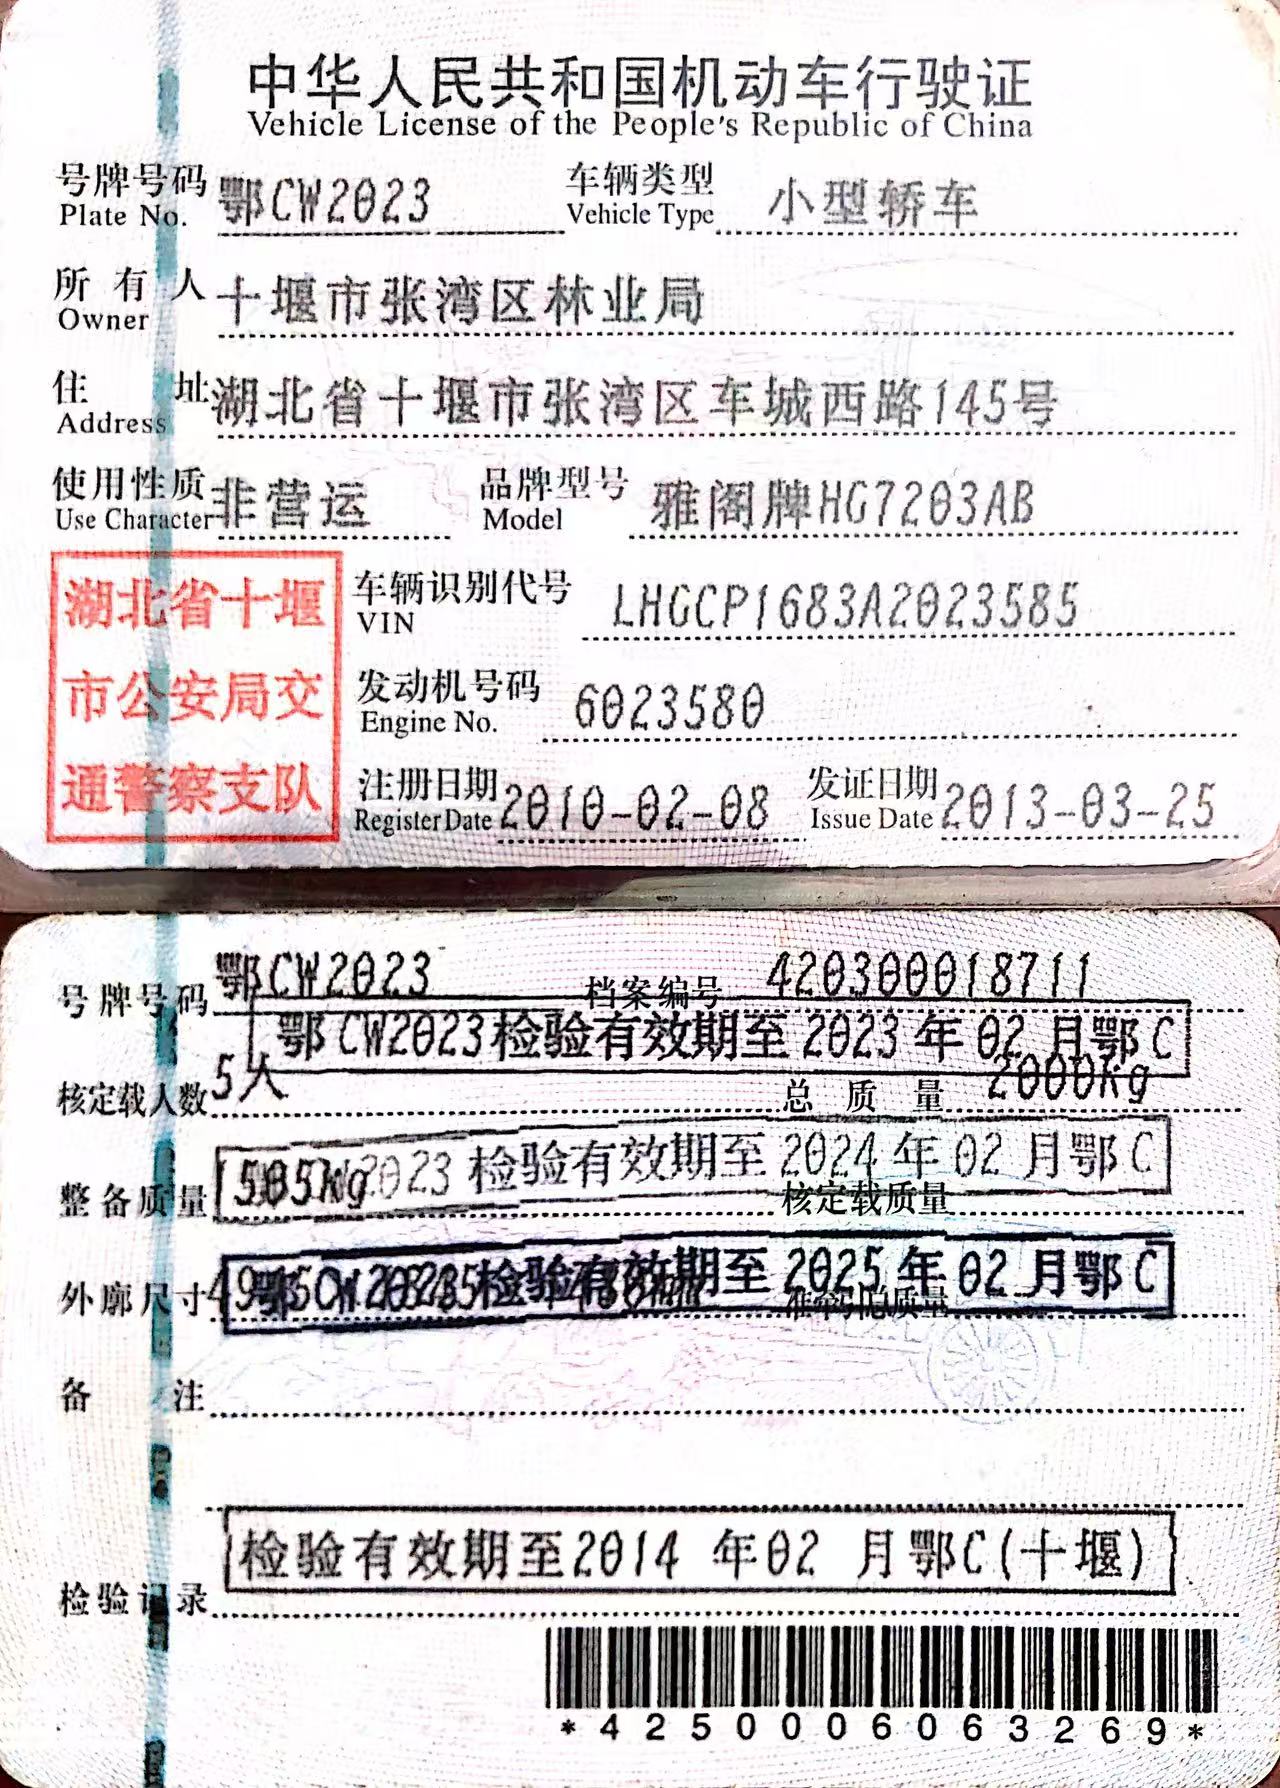 中华人民共和国机动车行驶证
Vehicle License of the People's Republic of China
号牌号码 鄂CW2023 车辆类型 小型轿车
Plate No. Vehicle Type
所有人 十堰市张湾区林业局
Owner
住址 湖北省十堰市张湾区车城西路145号
Address
使用性质 非营运 品牌型号 雅阁牌HG7203AB
Use Character Model
湖北省十堰
市公安局交
通警察支队
车辆识别代号 LHGCP1683A2023585
VIN
发动机号码 6023580
Engine No.
注册日期 2010-02-08 发证日期 2013-03-25
Register Date Issue Date
号牌号码 鄂CW2023 档案编号 420300018711
鄂CW2023检验有效期至2023年02月鄂C
核定载人数 5人 总质量 2000kg
检验有效期至2024年02月鄂C
整备质量 1505kg 核定载质量
检验有效期至2025年02月鄂C
外廓尺寸 准牵引总质量
备注
检验有效期至2014年02月鄂C(十堰)
检验记录
*4250006063269*